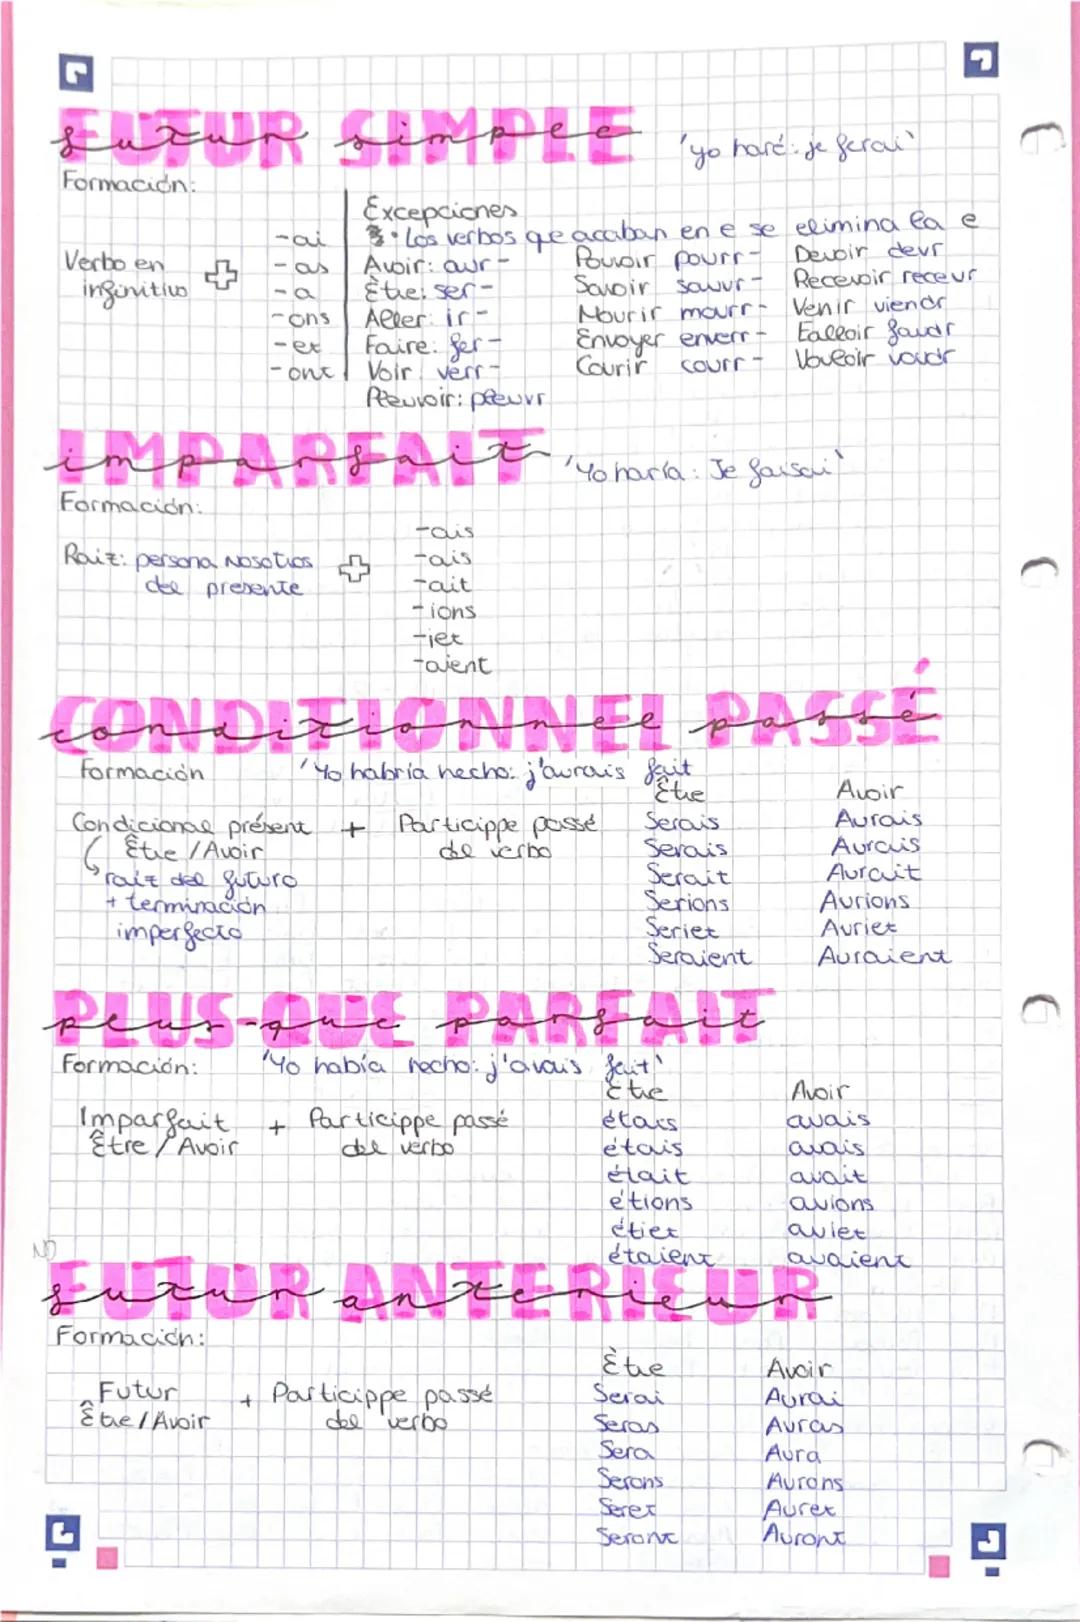 FUTUR SIMPLE
futur simple
'yo haré: je ferai'
Formación:
Verbo en infinitivo +
-ai
-as
-a
-ons
-ez
-ont
Excepciones
· Los verbos que acaban en e se elimina la e
Avoir: aur- Pouvoir pourr- Devoir devr
Être: ser- Savoir saur- Recevoir recevr
Aller: ir- Mourir mourr- Venir viendr
Faire: fer- Envoyer enverr- Falloir faudr
Voir: verr- Courir courr- Vouloir voudr
Pleuvoir: pleuvr
IMPARFAIT
imparfait
'Yo haría: Je faisai'
Formación:
Raiz: persona Nosotros +
del presente
-ais
-ais
-ait
-ions
-iez
-aient
CONDITIONNEL PASSÉ
conditionnel passé
Formación 'Yo habría hecho: j'aurais fait
Condicional présent + Particippe passé
Être / Avoir del verbo
raiz del futuro
+ terminación
imperfecto
Être Avoir
Serais Aurais
Serais Aurais
Serait Aurait
Serions Aurions
Seriez Auriez
Seraient Auraient
PLUS-QUE PARFAIT
plus-que parfait
Formación: 'Yo había hecho: j'avais fait'
Imparfait + Particippe passé
Être / Avoir del verbo
Être Avoir
étais avais
étais avais
était avait
étions avions
étiez aviez
étaient avaient
NO
FUTUR ANTERIEUR
futur anterieur
Formación:
Futur + Particippe passé
Être / Avoir del verbo
Être Avoir
Serai Aurai
Seras Auras
Sera Aura
Serons Aurons
Serez Aurez
Seront Auront